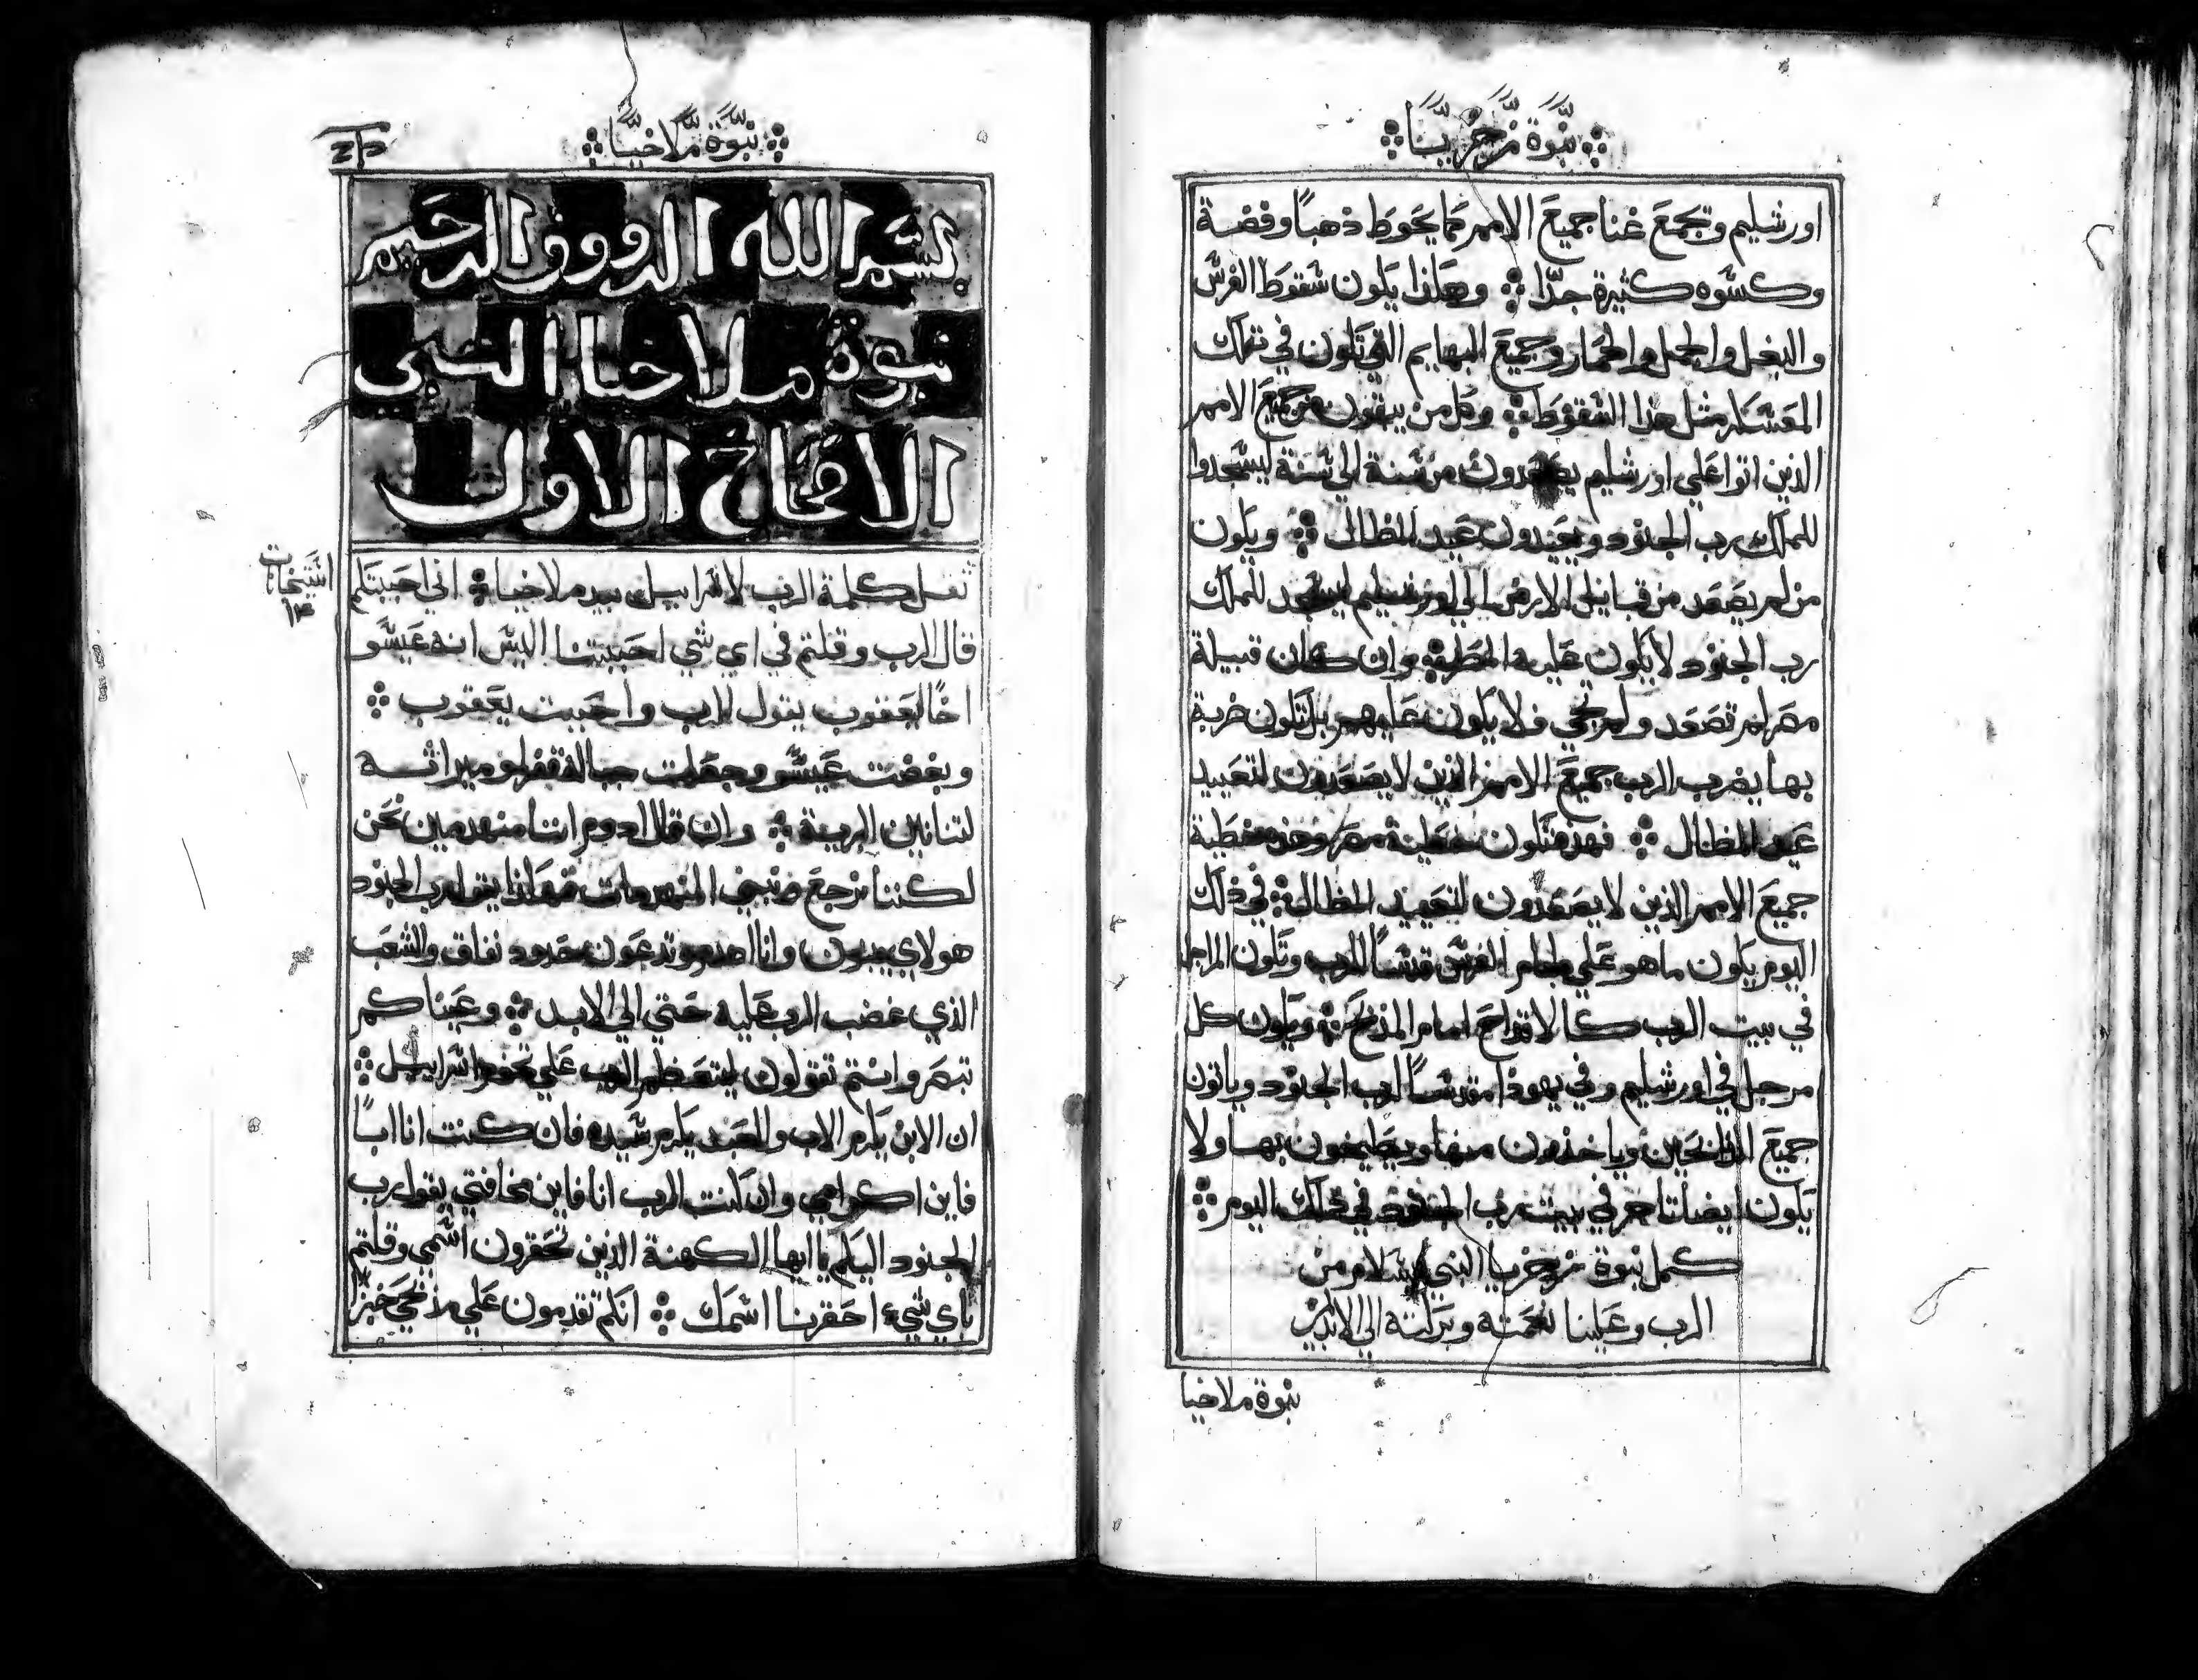 نبوة زخريا
اورشليم وتجمع غنا جميع الامم كما يحوط ذهبًا وفضة
وكسوه كثيرة جدًا وهكذا يكون سقوط الفرس
والبغل والجمل والحمار وجميع البهايم التي تكون في تلك
المعسكر مثل هذا السقوط وكل من يبقون من جميع الامم
الذين اتوا علي اورشليم يصعدون من سنة الي سنة ليسجدوا
للملك رب الجنود ويعيدون عيد المظال ويكون
من لم يصعد من قبايل الارض الي اورشليم ليسجد للملك
رب الجنود لا يكون عليه المطر وان كان قبيلة
مصر لم تصعد ولم تجي فلا يكون عليهم بل تكون ضربة
بها يضرب الرب جميع الامم الذين لا يصعدون لتعييد
عيد المظال فهذه تكون خطية مصر وهذه خطية
جميع الامم الذين لا يصعدون لتعييد المظال في ذلك
اليوم يكون ماهو علي لجام الفرس قدسًا للرب وتكون المراجل
في بيت الرب كالاقداح امام المذبح ويكون كل
مرجل في اورشليم وفي يهوذا مقدسًا لرب الجنود وياتون
جميع الذابحين وياخذون منها ويطبخون بها ولا
يكون ايضا تاجر في بيت رب الجنود في ذلك اليوم
كمل نبوة زخريا النبي بسلام من
الرب وعلينا نعمته وبركته الي الابد
نبوة ملاخيا
نبوة ملاخيا
بسم الله الرووف الرحيم
نبوة ملاخيا النبي
الاصحاح الاول
ثقل كلمة الرب لاسراييل بيد ملاخيا اني احببتكم
قال الرب وقلتم في اي شي احببتنا اليس انه عيسو
اخًا ليعقوب يقول الرب واحببت يعقوب
وبغضت عيسو وجعلت جباله قفر وميراثه
لتنانين البرية وان قال ادوم اننا منهدمين نحن
لكننا نرجع ونبني المنهدمات فهكذا يقول رب الجنود
هولاي يبنون وانا اهدم وتدعون حدود نفاق والشعب
الذي غضب الرب عليه حتي الي الابد وعيناكم
تبصر وانتم تقولون ليتعظم الرب علي تخوم اسراييل
ان الابن يكرم الاب والعبد يكرم سيده فان كنت انا ابًا
فاين اكرامي وان كنت الرب انا فاين مخافتي يقول رب
الجنود اليكم يا ايها الكهنة الذين تحقرون اسمي وقلتم
باي شيء احقرنا اسمك انكم تقدمون علي مذبحي خبزًا